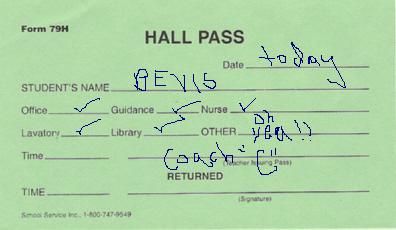 Form 79H
HALL PASS
Date today
STUDENT'S NAME BEVIS
Office ✓ Guidance ✓ Nurse ✓
Lavatory ✓ Library ✓ OTHER oh yea!!
Time Coach "C"
(Teacher Issuing Pass)
RETURNED
TIME
(Signature)
School Service Inc., 1-800-747-9549